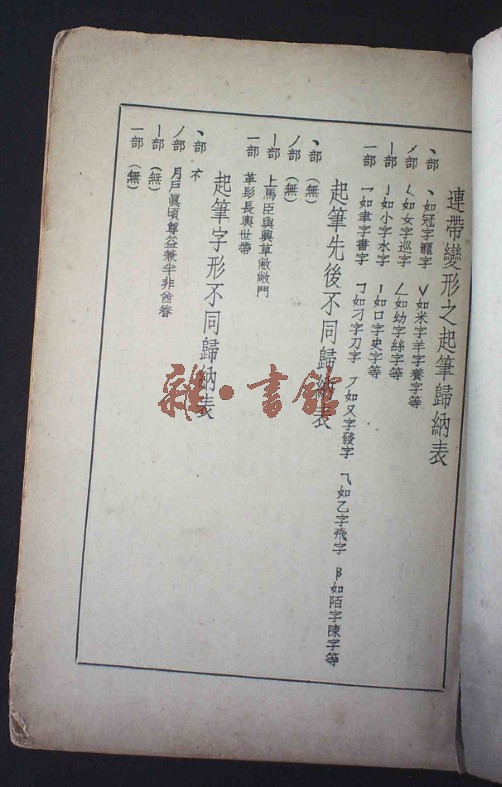 連帶變形之起筆歸納表
丶部 丶如冠字寵字 ∨如米字羊字養字等
ノ部 く如女字巡字 ㄥ如幼字絲字等
丨部 亅如小字水字 丨如口字史字等
一部 一如聿字書字 ㇆如刁字刀字 フ如又字發字 乁如乙字飛字 阝如陌字陳字等
起筆先後不同歸納表
丶部 (無)
ノ部 (無)
丨部 上馬臣與興草敝敞鬥
一部 革髟長輿世帶
起筆字形不同歸納表
丶部
ノ部 月戶眞頃尊益兼半非酋眷
丨部 (無)
一部 (無)
雜·書館